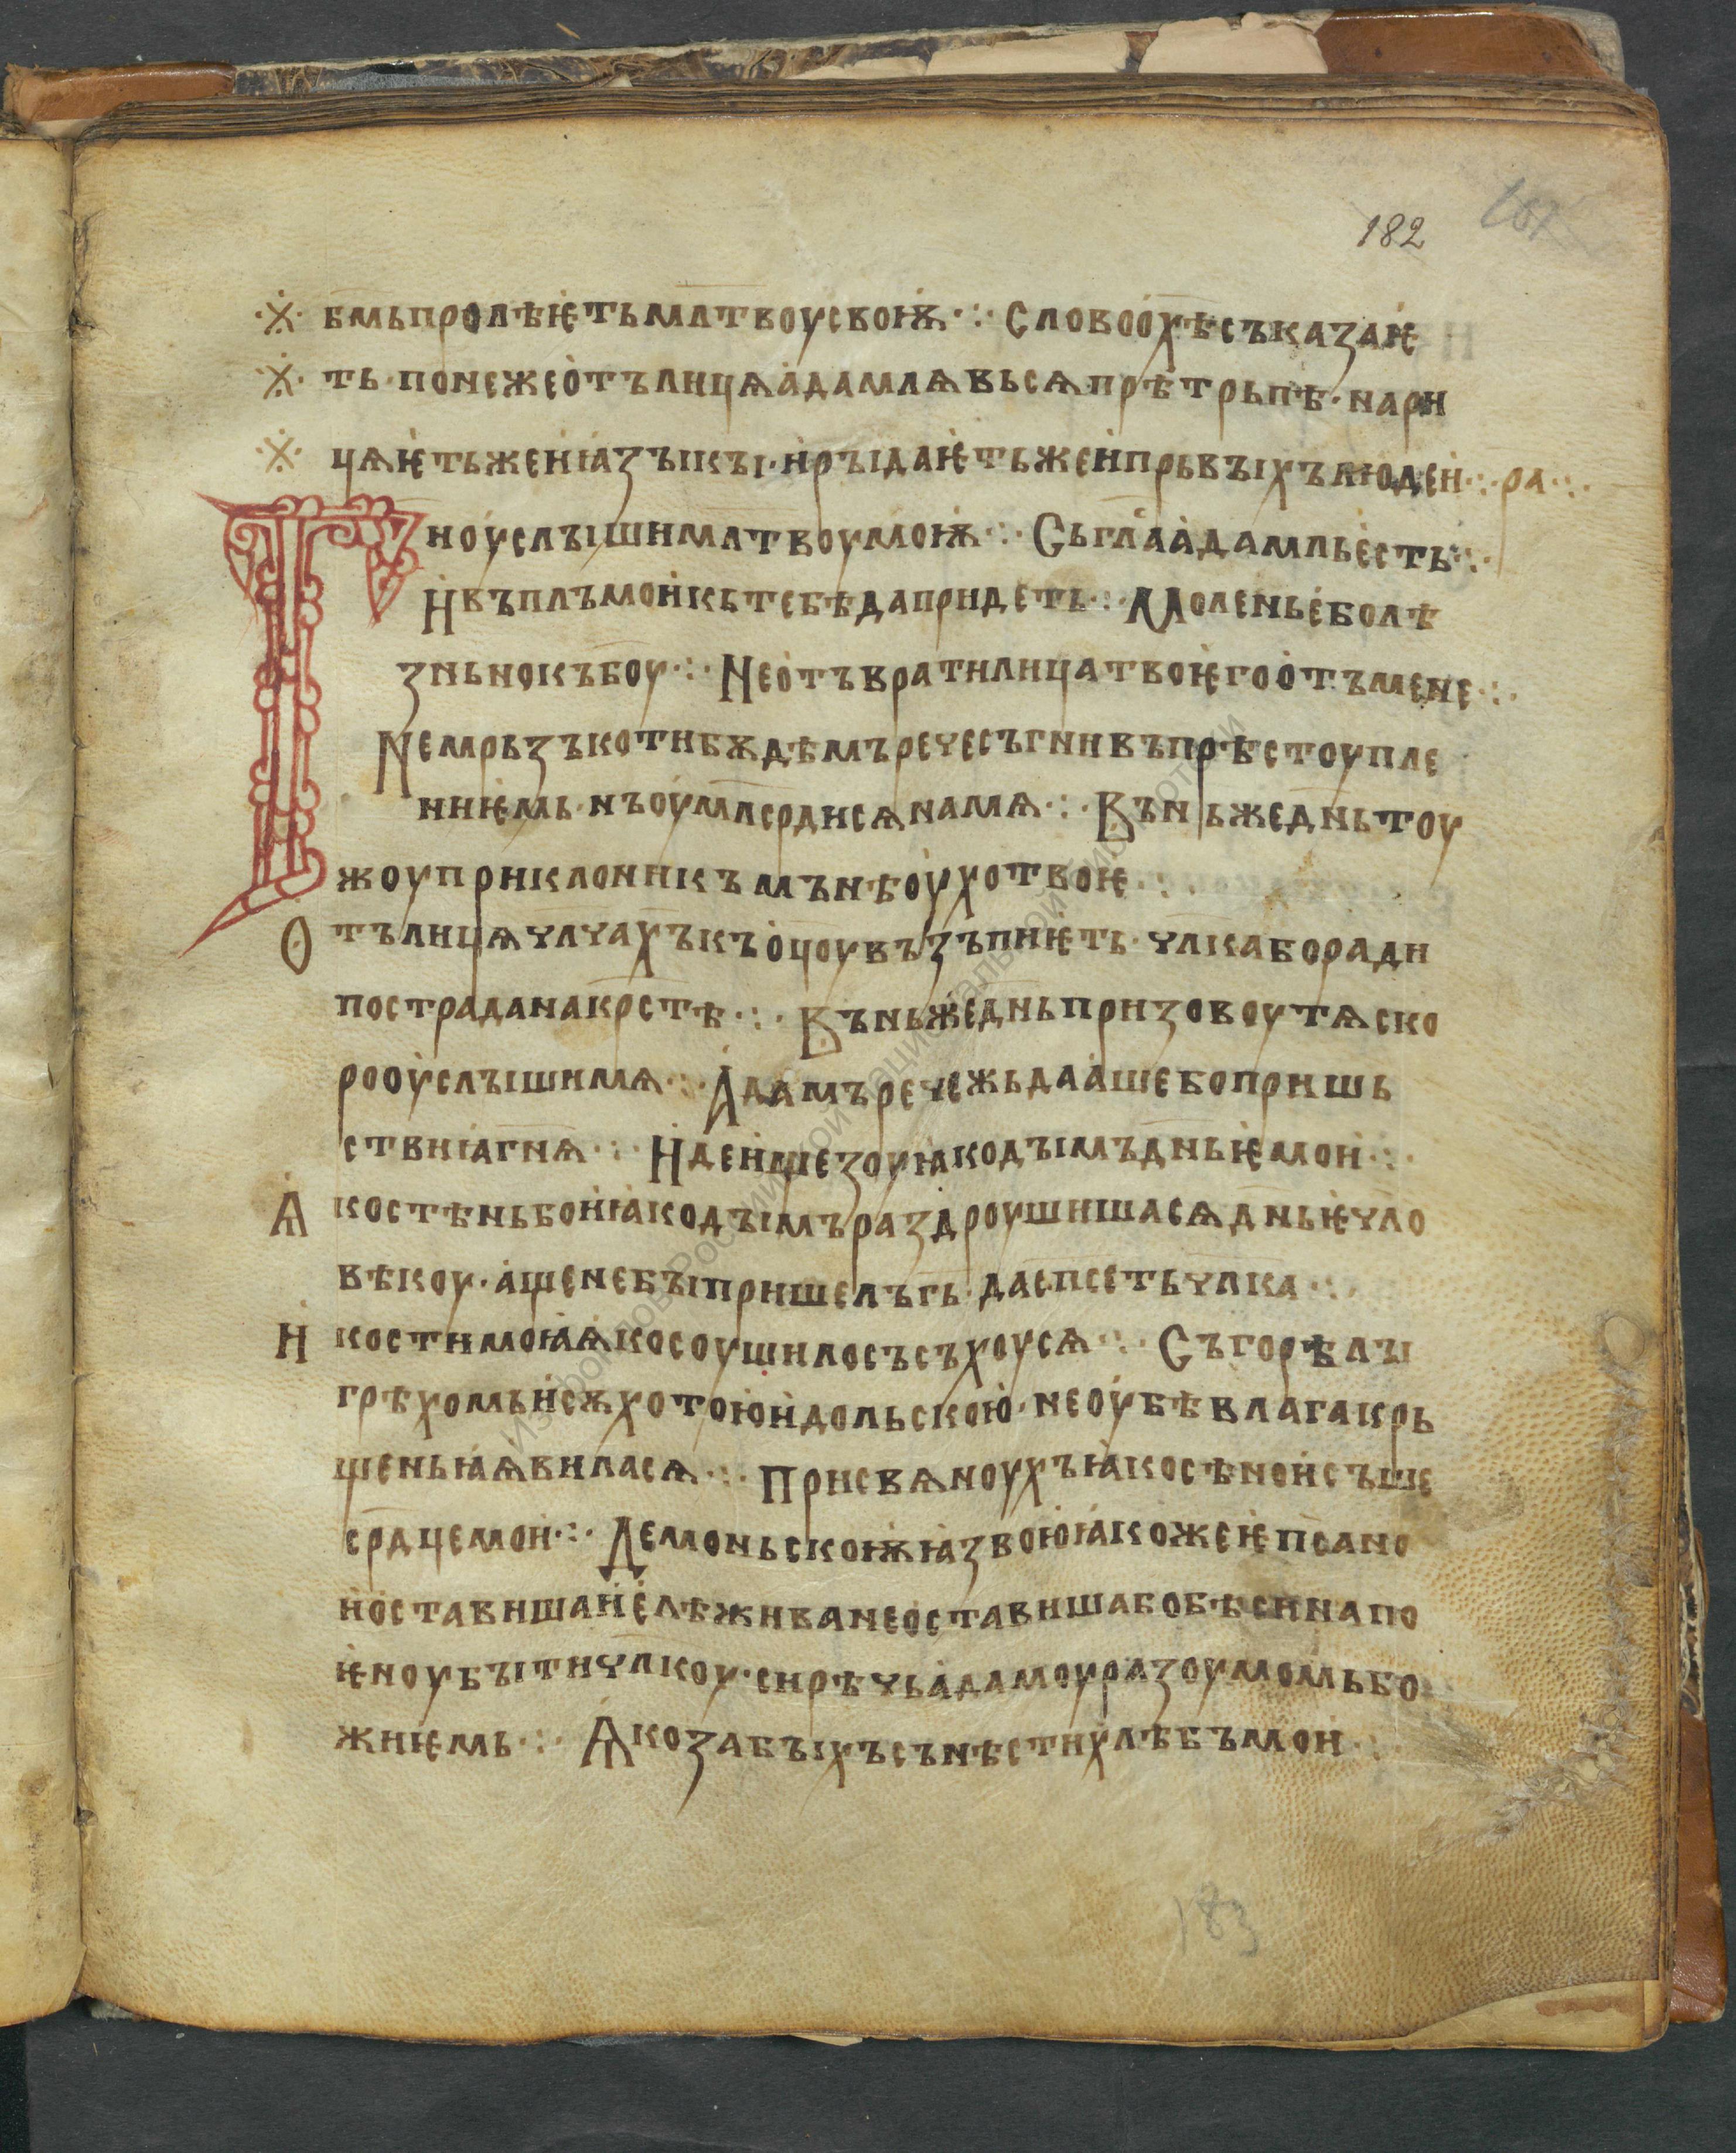 182
бмь пролѣѥть млтвоу своѭ ⁘ слово о хѣ съказаѥ
ть · понеже отъ лицѧ адамлѧ вьсѧ прѣтрьпѣ · нари
цѧѥть же и ꙗзъікъі · и ръідаѥть же и прьвъіхъ людеи ⁘ ра ⁘
Г
и оуслъіши млтвоу моѭ ⁘ Сь гла адамль есть ⁘
И въпль мои кь тебѣ да придеть ⁘ Моленье болѣ
зньно къ боу ⁘ Не отъврати лица твоѥго отъ мене ⁘
Не мрьзъко ти бѫдѣмъ рече съ ги и въ прѣстоупле
ниѥмь · нъ оумлсрдисѧ на мѧ ⁘ Въ ньже днь тоу
жоу приклони къ мънѣ оухо твоѥ ⁘
О тъ лицѧ члчахъ къ оцоу възъпиѥть · члка бо ради
пострада на крстѣ ⁘ Въ ньже днь призовоу тѧ ско
ро оуслъіши мѧ ⁘ Адамъ рече жьдааше бо пришь
ствиꙗ гнѧ ⁘ Идеиште зоу ꙗко дъімъ днье мои ⁘
Ѧ ко стѣнь бо и ꙗко дъімъ раздроушишасѧ днье чло
вѣкоу · аще не бъі пришелъ гь да спсеть члка ⁘
И кости моꙗ ѧко соушило съсъхоусѧ ⁘ Съгорѣлъі
грѣхомь и сѫхотою идольскою · не оу бѣ влага крь
щеньꙗ ѧвиласѧ ⁘ Присвѧноухъ ꙗко сѣно исъше
срдце мои ⁘ Демоньскоѭ ꙗзвою ꙗкоже ѥ псано
и оставиша и елѣ жива не оставиша бо бѣси на по
ѥноу бъіти члкоу · сирѣчь адамоу разоумомь бо
жиѥмь ⁘ Ѧко забъіхъ сънѣсти хлѣбъ мои ⁘
183